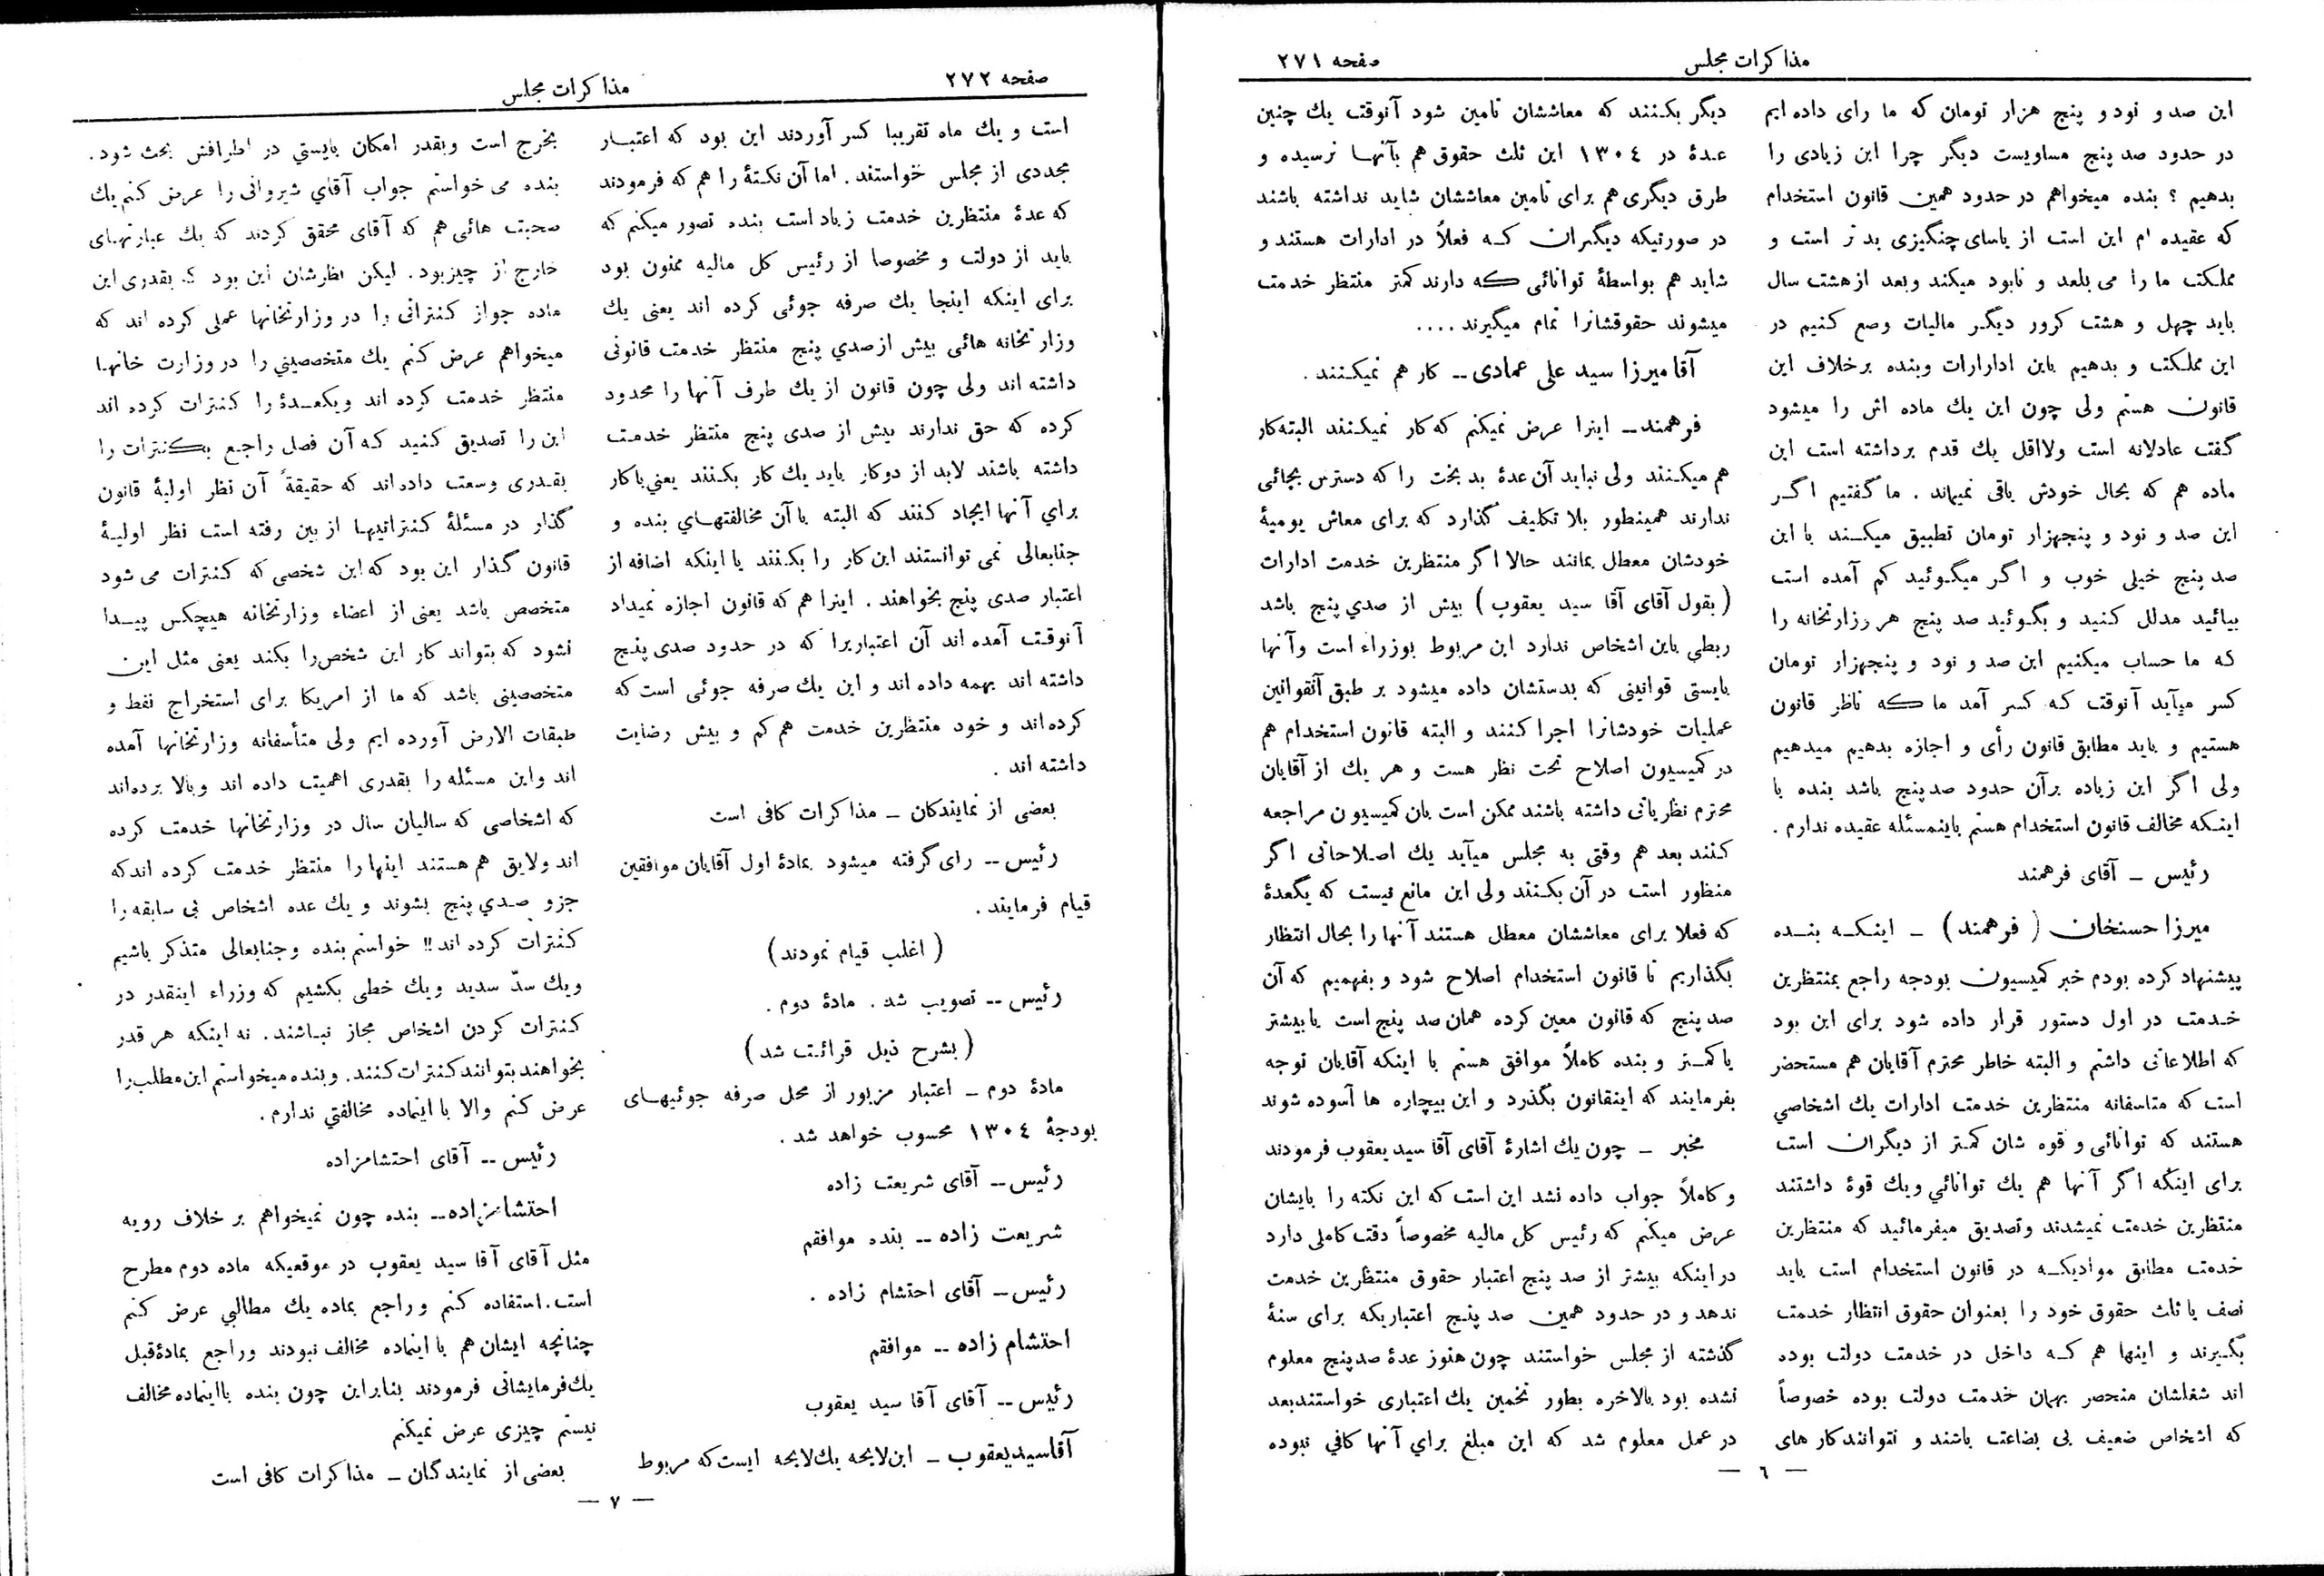 مذاکرات مجلس
صفحه ۲۷۱
این صد و نود و پنج هزار تومان که ما رای داده ایم
در حدود صد پنج مساویست دیگر چرا این زیادی را
بدهیم ؟ بنده میخواهم در حدود همین قانون استخدام
که عقیده ام این است از یاسای چنگیزی بد تر است و
مملکت ما را می بلعد و نابود میکند وبعد از هشت سال
باید چهل و هشت کرور دیگر مالیات وضع کنیم در
این مملکت و بدهیم باین ادارارات وبنده برخلاف این
قانون هستم ولی چون این یك ماده اش را میشود
گفت عادلانه است ولااقل یك قدم برداشته است این
ماده هم که بحال خودش باقی نمیماند . ما گفتیم اگر
این صد و نود و پنجهزار تومان تطبیق میکند با این
صد پنج خیلی خوب و اگر میگوئید کم آمده است
بیائید مدلل کنید و بگوئید صد پنج هر وزارتخانه را
که ما حساب میکنیم این صد و نود و پنجهزار تومان
کسر میآید آنوقت که کسر آمد ما که ناظر قانون
هستیم و باید مطابق قانون رأی و اجازه بدهیم میدهیم
ولی اگر این زیاده برآن حدود صد پنج باشد بنده با
اینکه مخالف قانون استخدام هستم باینمسئله عقیده ندارم .
رئیس ـ آقای فرهمند
میرزا حسنخان ( فرهمند ) ـ اینکه بنده
پیشنهاد کرده بودم خبر کمیسیون بودجه راجع بمنتظرین
خدمت در اول دستور قرار داده شود برای این بود
که اطلاعاتی داشتم و البته خاطر محترم آقایان هم مستحضر
است که متاسفانه منتظرین خدمت ادارات یك اشخاصي
هستند که توانائی و قوه شان کمتر از دیگران است
برای اینکه اگر آنها هم یك توانائي ویك قوۀ داشتند
منتظرین خدمت نمیشدند وتصدیق میفرمائید که منتظرین
خدمت مطابق موادیکه در قانون استخدام است باید
نصف یا ثلث حقوق خود را بعنوان حقوق انتظار خدمت
بگیرند و اینها هم که داخل در خدمت دولت بوده
اند شغلشان منحصر بهمان خدمت دولت بوده خصوصاً
که اشخاص ضعیف بی بضاعت باشند و نتوانند کار های
دیگر بکنند که معاششان تامین شود آنوقت یك چنین
عدۀ در ۱۳۰٤ این ثلث حقوق هم بآنها نرسیده و
طرق دیگری هم برای تامین معاششان شاید نداشته باشند
در صورتیکه دیگران که فعلاً در ادارات هستند و
شاید هم بواسطۀ توانائی که دارند کمتر منتظر خدمت
میشوند حقوقشانرا تمام میگیرند ....
آقا میرزا سید علی عمادی ـ کار هم نمیکنند .
فرهمند ـ اینرا عرض نمیکنم که کار نمیکنند البته کار
هم میکنند ولی نباید آن عدۀ بد بخت را که دسترس بجائی
ندارند همینطور بلا تکلیف گذارد که برای معاش یومیۀ
خودشان معطل بمانند حالا اگر منتظرین خدمت ادارات
( بقول آقای آقا سید یعقوب ) بیش از صدي پنج باشد
ربطي باین اشخاص ندارد این مربوط بوزراء است وآنها
بایستی قوانینی که بدستشان داده میشود بر طبق آنقوانین
عملیات خودشانرا اجرا کنند و البته قانون استخدام هم
در کمیسیون اصلاح تحت نظر هست و هر یك از آقایان
محترم نظریاتی داشته باشند ممکن است بان کمیسیون مراجعه
کنند بعد هم وقتی به مجلس میآید یك اصلاحاتی اگر
منظور است در آن بکنند ولی این مانع نیست که یکعدۀ
که فعلا برای معاششان معطل هستند آنها را بحال انتظار
بگذاریم تا قانون استخدام اصلاح شود و بفهمیم که آن
صد پنج که قانون معین کرده همان صد پنج است یا بیشتر
یا کمتر و بنده کاملاً موافق هستم با اینکه آقایان توجه
بفرمایند که اینقانون بگذرد و این بیچاره ها آسوده شوند
مخبر ـ چون یك اشارۀ آقای آقا سید یعقوب فرمودند
و کاملاً جواب داده نشد این است که این نکته را بایشان
عرض میکنم که رئیس کل مالیه مخصوصاً دقت کاملی دارد
در اینکه بیشتر از صد پنج اعتبار حقوق منتظرین خدمت
ندهد و در حدود همین صد پنج اعتباریکه برای سنۀ
گذشته از مجلس خواستند چون هنوز عدۀ صد پنج معلوم
نشده بود بالاخره بطور تخمین یك اعتباری خواستند بعد
در عمل معلوم شد که این مبلغ براي آنها کافي نبوده
— ٦ —
صفحه ۲۷۲
مذاکرات مجلس
است و یك ماه تقریبا کسر آوردند این بود که اعتبار
مجددی از مجلس خواستند . اما آن نکتۀ را هم که فرمودند
که عدۀ منتظرین خدمت زیاد است بنده تصور میکنم که
باید از دولت و مخصوصا از رئیس کل مالیه ممنون بود
برای اینکه اینجا یك صرفه جوئی کرده اند یعنی یك
وزارتخانه هائی بیش از صدي پنج منتظر خدمت قانونی
داشته اند ولی چون قانون از یك طرف آنها را محدود
کرده که حق ندارند بیش از صدی پنج منتظر خدمت
داشته باشند لابد از دو کار باید یك کار بکنند یعني یا کار
براي آنها ایجاد کنند که البته با آن مخالفتهاي بنده و
جنابعالی نمی توانستند این کار را بکنند یا اینکه اضافه از
اعتبار صدی پنج بخواهند . اینرا هم که قانون اجازه نمیداد
آنوقت آمده اند آن اعتباریرا که در حدود صدی پنج
داشته اند بهمه داده اند و این یك صرفه جوئی است که
کرده اند و خود منتظرین خدمت هم کم و بیش رضایت
داشته اند .
بعضی از نمایندکان ـ مذاکرات کافی است
رئیس ـ رای گرفته میشود بمادۀ اول آقایان موافقین
قیام فرمایند .
( اغلب قیام نمودند )
رئیس ـ تصویب شد . مادۀ دوم .
( بشرح ذیل قرائت شد )
مادۀ دوم ـ اعتبار مزبور از محل صرفه جوئیهای
بودجۀ ۱۳۰٤ محسوب خواهد شد .
رئیس ـ آقای شریعت زاده
شریعت زاده ـ بنده موافقم
رئیس ـ آقای احتشام زاده .
احتشام زاده ـ موافقم
رئیس ـ آقای آقا سید یعقوب
آقا سید یعقوب ـ این لایحه یك لایحه ایست که مربوط
بخرج است وبقدر امکان بایستي در اطرافش بحث شود .
بنده می خواستم جواب آقاي شیروانی را عرض کنم یك
صحبت هائی هم که آقای محقق کردند که یك عبارتهای
خارج از چیز بود . لیکن نظرشان این بود که بقدری این
ماده جواز کنتراتی را در وزارتخانها عملی کرده اند که
میخواهم عرض کنم یك متخصصینی را در وزارت خانها
منتظر خدمت کرده اند ویکعدۀ را کنترات کرده اند
این را تصدیق کنید که آن فصل راجع بکنترات را
بقدری وسعت داده اند که حقیقةً آن نظر اولیۀ قانون
گذار در مسئلۀ کنتراتیها از بین رفته است نظر اولیۀ
قانون گذار این بود که این شخصی که کنترات می شود
متخصص باشد یعنی از اعضاء وزارتخانه هیچکس پیدا
نشود که بتواند کار این شخص را بکند یعنی مثل این
متخصصینی باشد که ما از امریکا برای استخراج نفط و
طبقات الارض آورده ایم ولی متأسفانه وزارتخانها آمده
اند و این مسئله را بقدری اهمیت داده اند و بالا برده اند
که اشخاصی که سالیان سال در وزارتخانها خدمت کرده
اند ولایق هم هستند اینها را منتظر خدمت کرده اند که
جزو صدي پنج بشوند و یك عده اشخاص بی سابقه را
کنترات کرده اند !! خواستم بنده وجنابعالی متذکر باشیم
ویك سدّ سدید ویك خطی بکشیم که وزراء اینقدر در
کنترات کردن اشخاص مجاز نباشند . نه اینکه هر قدر
بخواهند بتوانند کنترات کنند . وبنده میخواستم این مطلب را
عرض کنم والا با اینماده مخالفتي ندارم .
رئیس ـ آقای احتشامزاده
احتشامزاده ـ بنده چون نمیخواهم بر خلاف رویه
مثل آقای آقا سید یعقوب در موقعیکه ماده دوم مطرح
است . استفاده کنم و راجع بماده یك مطالبي عرض کنم
چنانچه ایشان هم با اینماده مخالف نبودند وراجع بمادۀ قبل
یك فرمایشاتی فرمودند بنابراین چون بنده با اینماده مخالف
نیستم چیزی عرض نمیکنم
بعضی از نمایندگان ـ مذاکرات کافی است
— ۷ —